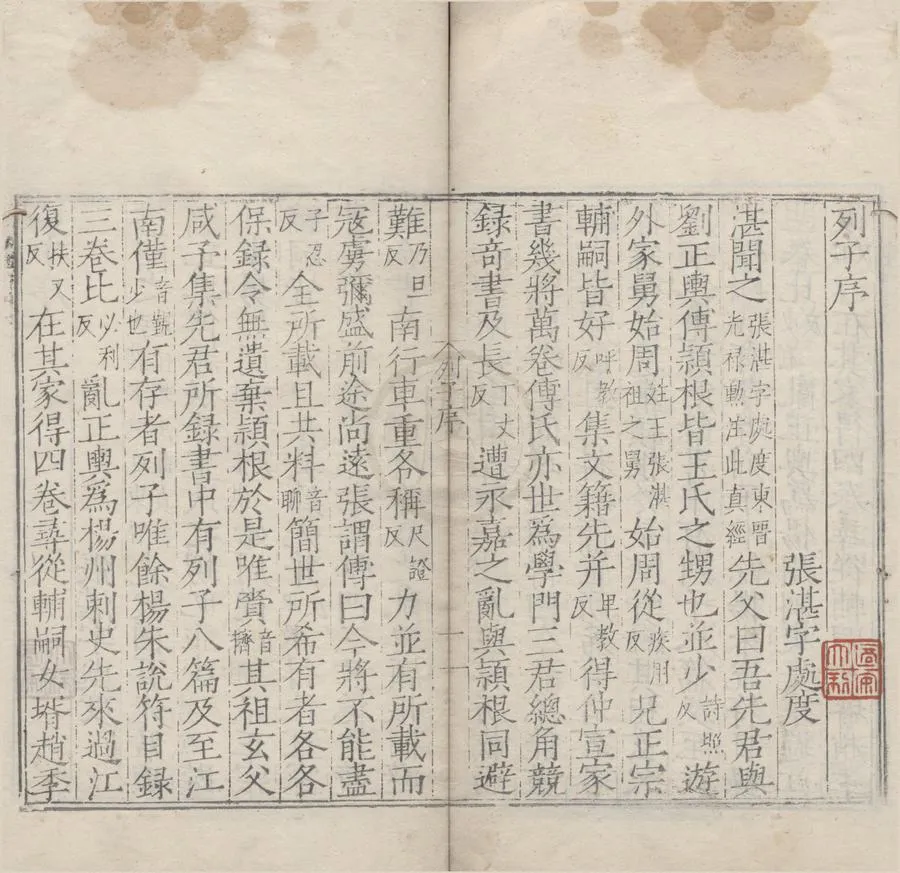 列子序
張湛字處度
湛聞之張湛字處度東晉光禄勲注此真經先父曰吾先君與
劉正輿傅潁根皆王氏之甥也並少詩照反遊
外家舅始周姓王張湛祖之舅始周從疾用反兄正宗
輔嗣皆好呼教反集文籍先并畀教反得仲宣家
書幾將萬卷傅氏亦世為學門三君總角競
録奇書及長丁丈反遭永嘉之亂與潁根同避
列子序
一
難乃旦反南行車重各稱尺證反力並有所載而
冦虜彌盛前途尚遠張謂傅曰今將不能盡
子忍反全所載且共料音聊簡世所希有者各各
保録令無遺棄潁根於是唯賫音擠其祖玄父
咸子集先君所録書中有列子八篇及至江
南僅音覲少也有存者列子唯餘楊朱說符目録
三卷比必利反亂正輿為楊州刺史先來過江
復扶又反在其家得四卷尋從輔嗣女壻趙季